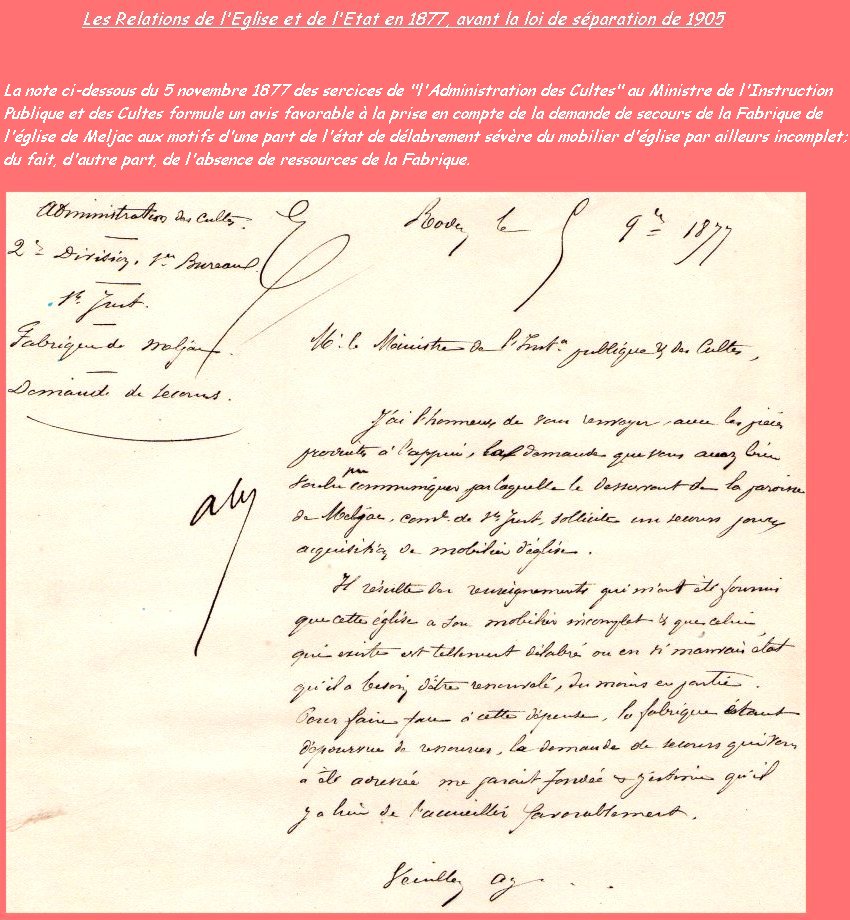 Les Relations de l'Eglise et de l'Etat en 1877, avant la loi de séparation de 1905
La note ci-dessous du 5 novembre 1877 des sercices de "l'Administration des Cultes" au Ministre de l'Instruction
Publique et des Cultes formule un avis favorable à la prise en compte de la demande de secours de la Fabrique de
l'église de Meljac aux motifs d'une part de l'état de délabrement sévère du mobilier d'église par ailleurs incomplet;
du fait, d'autre part, de l'absence de ressources de la Fabrique.
Administration des Cultes.
Rodez le 5 9bre 1877
2e Division, 1er Bureau.
St Just.
Fabrique de Meljac.
Demande de secours.
Mr le Ministre de l'Inston publique & des Cultes,
J'ai l'honneur de vous renvoyer avec les pièces
produits à l'appui, la demande que vous avez bien
voulu me communiquer par laquelle le desservant de la paroisse
de Meljac, comne de St Just, sollicite un secours pour
acquisition de mobilier d'église.
Il résulte des renseignements qui m'ont été fournis
que cette église a son mobilier incomplet & que celui
qui existe est tellement délabré ou en si mauvais état
qu'il a besoin d'être renouvelé, du moins en partie.
Pour faire face à cette dépense, la fabrique étant
dépourvue de ressources, la demande de secours qui vous
a été adressée me parait fondée & j'estime qu'il
y a lieu de l'accueillir favorablement.
Veuillez ag